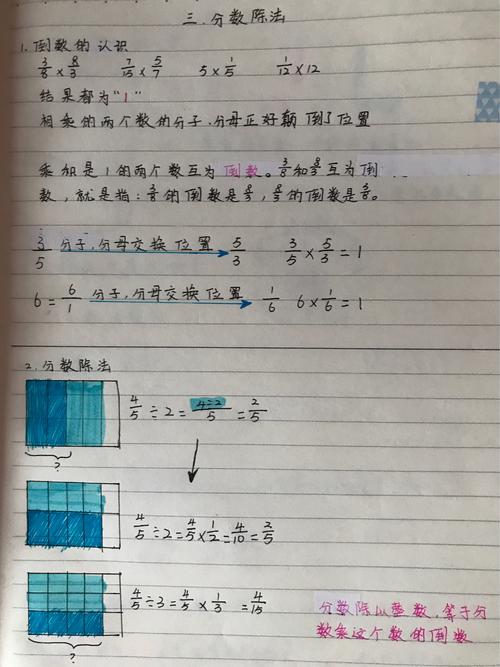 三.分数除法
1.倒数的认识
3/8×8/3 7/15×5/7 5×1/5 1/12×12
结果都为"1"
相乘的两个数的分子.分母正好颠倒了位置
乘积是1的两个数互为倒数。3/8和8/3互为倒
数，就是指：3/8的倒数是8/3，8/3的倒数是3/8。
3/5 分子,分母交换位置 5/3 3/5×5/3=1
6=6/1 分子,分母交换位置 1/6 6×1/6=1
2.分数除法
4/5÷2=4÷2/5=2/5
?
4/5÷2=4/5×1/2=4/10=2/5
4/5÷3=4/5×1/3=4/15
分数除以整数,等于分
数乘这个数的倒数
?